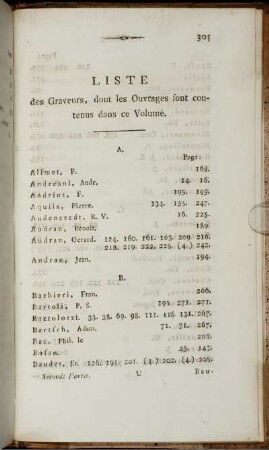 305
LISTE
des Graveurs, dont les Ouvrages sont con-
tenus dans ce Volume.
A.
Page:
Aliamet, F. 168.
Andreani, Andr. 14. 16.
Andriot, F. 195. 195.
Aquila, Pierre. 134. 135. 247.
Audenaerdt, R. V. 16. 225.
Audran, Benoit. 189.
Audran, Gerard. 124. 160. 161. 163. 209. 216.
218. 219. 222. 228. (4.) 242.
Audran, Jean. 194.
B.
Barbieri, Fran. 266.
Bartoli, P. S. 271. 271.
Bartolozzi. 33. 38. 69. 98. 111. 116. 131. 267.
Bartsch, Adam. 71. 71. 267.
Bas, Phil. le
43. 143.
Baudet, Et. 126. 201. (4.) 202. (4.) 205.
Seconde Partie. U Bau-